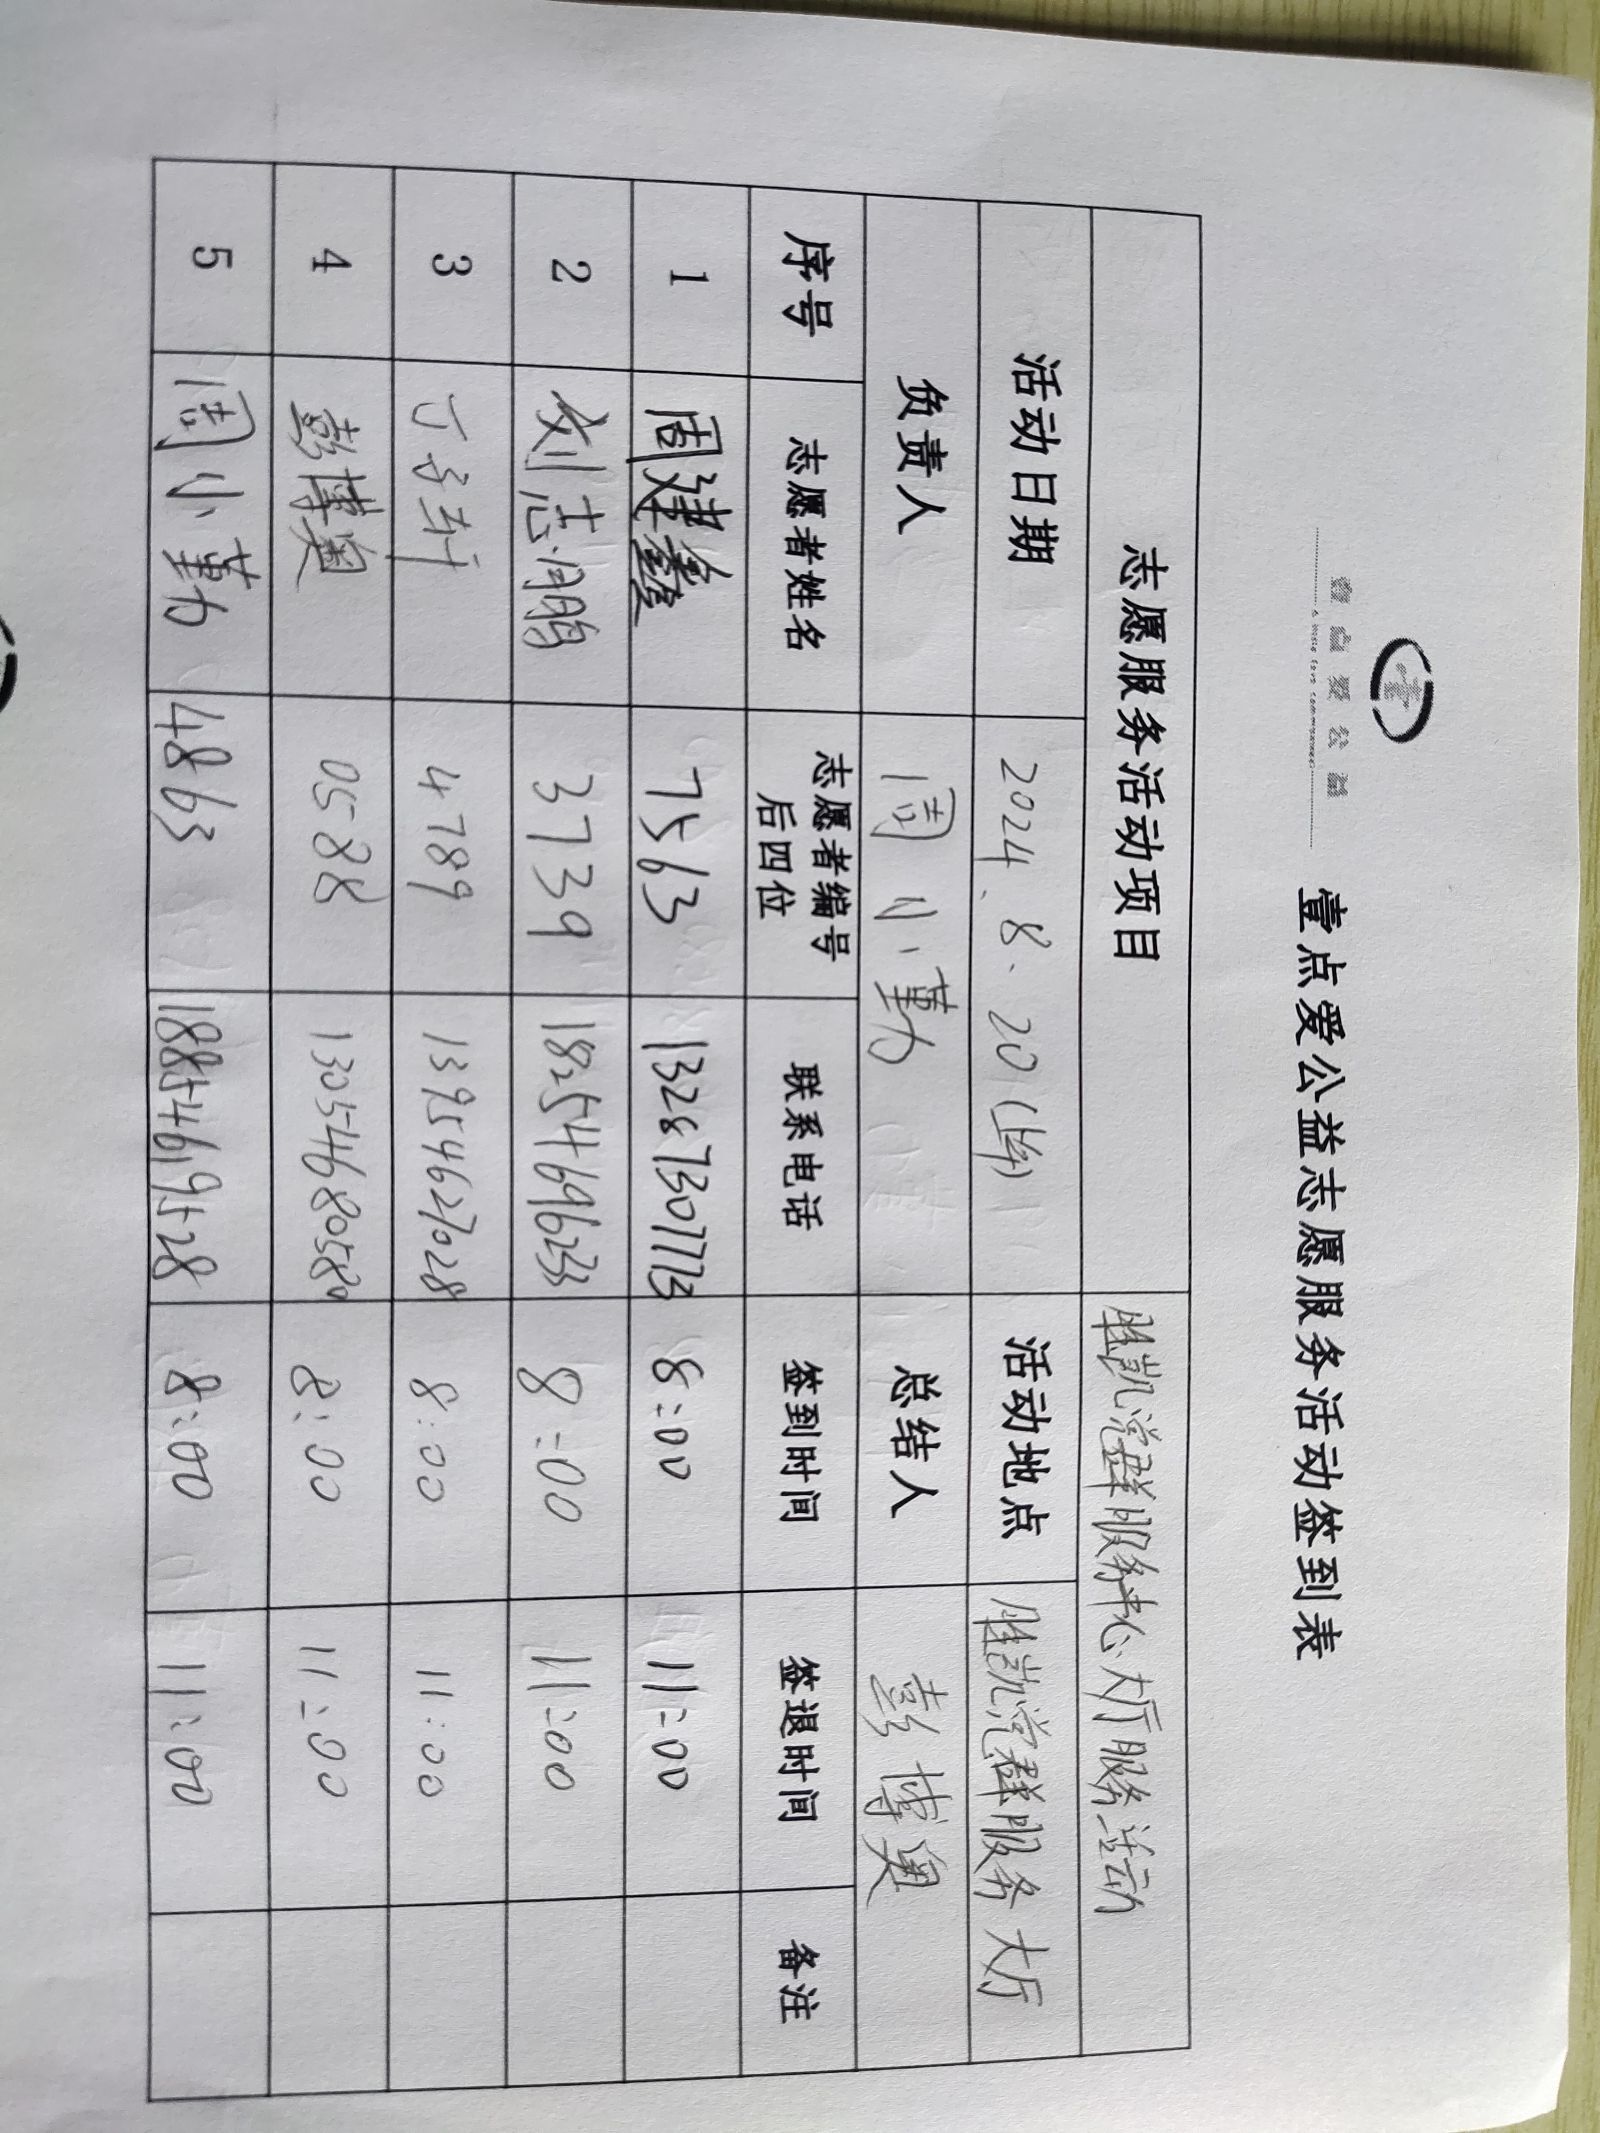 壹点爱公益
壹点爱公益志愿服务活动签到表
志愿服务活动项目 胜凯党群服务中心大厅服务活动
活动日期 2024.8.20(上午) 活动地点 胜凯党群服务大厅
负责人 周小勤 总结人 彭博奥
序号 志愿者姓名 志愿者编号后四位 联系电话 签到时间 签退时间 备注
1 周建鑫 7563 13287307773 8:00 11:00
2 刘志鹏 3739 18254696233 8:00 11:00
3 丁 4789 13954627028 8:00 11:00
4 彭博奥 0588 8:00 11:00
5 周小勤 4863 18854619528 8:00 11:00